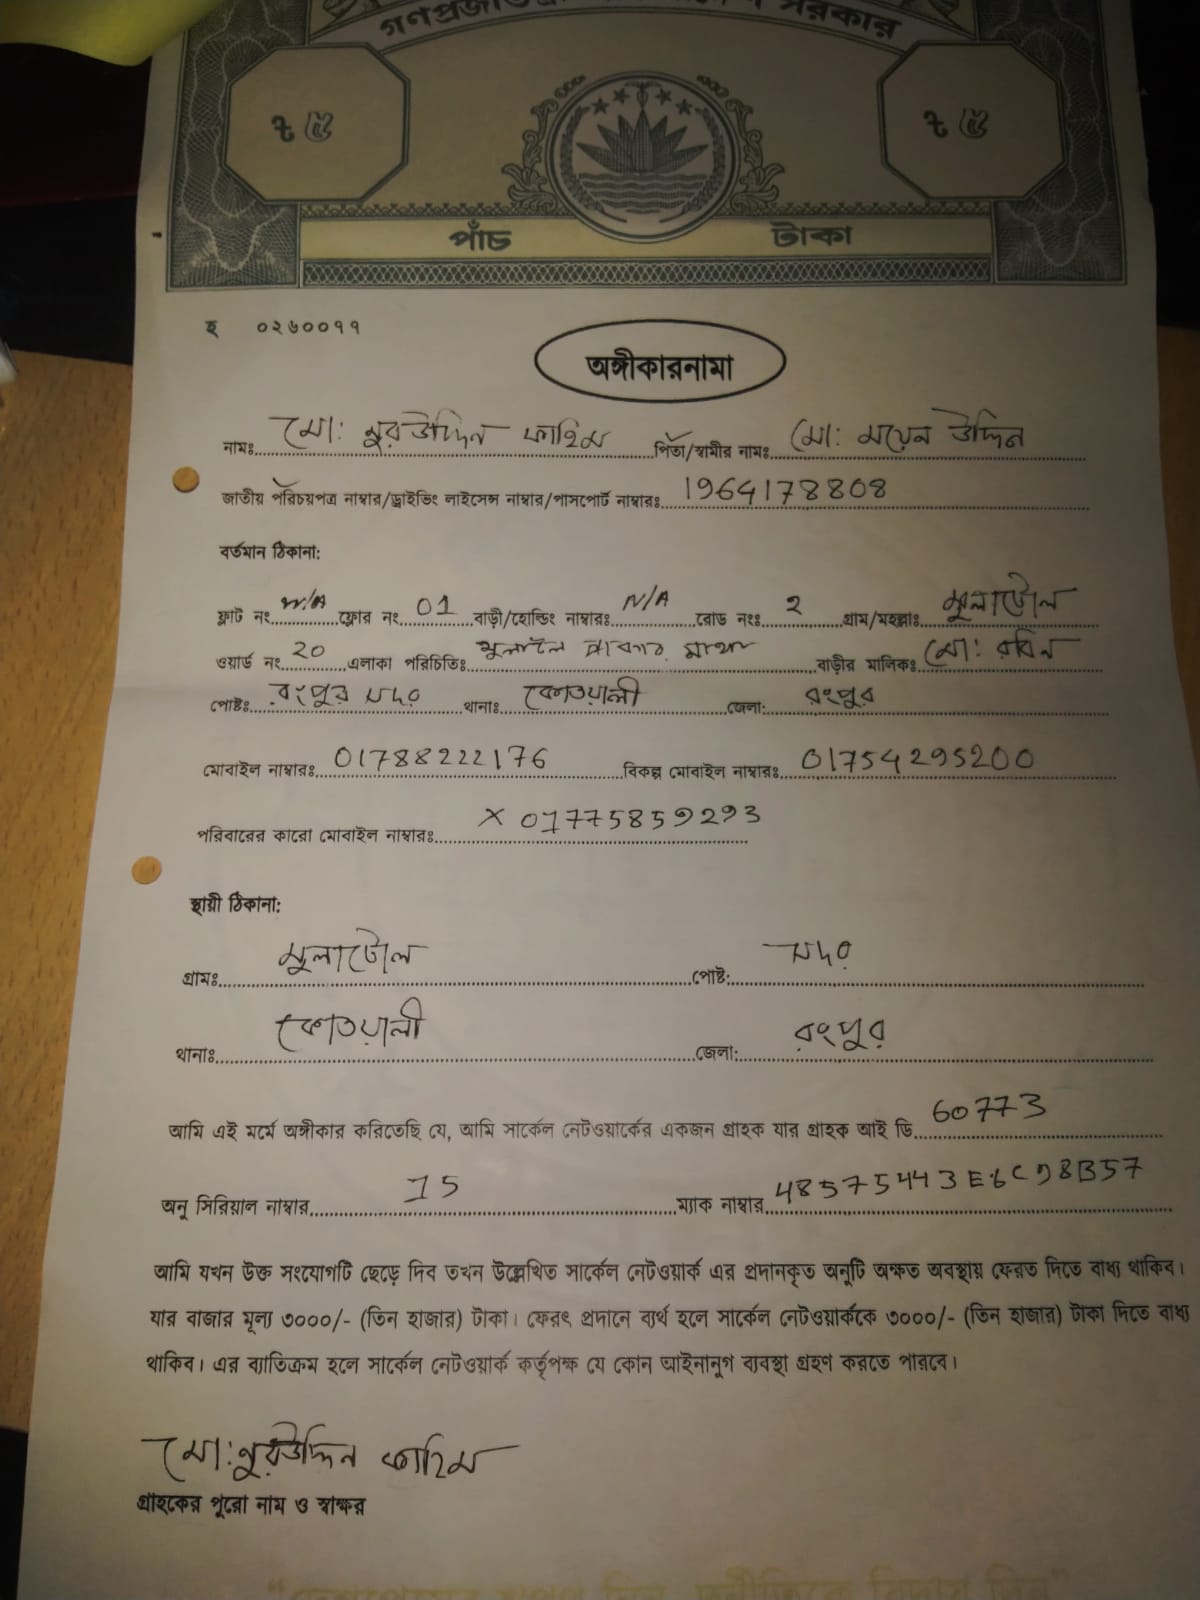 সরকার
৳ ৫ ৳ ৫
পাঁচ টাকা
হ ০২৬০০৭৭
অঙ্গীকারনামা
নামঃ মো: নুরউদ্দিন ফাহিম পিতা/স্বামীর নামঃ মো: ময়েন উদ্দিন
জাতীয় পরিচয়পত্র নাম্বার/ড্রাইভিং লাইসেন্স নাম্বার/পাসপোর্ট নাম্বারঃ 1964178808
বর্তমান ঠিকানা:
ফ্লাট নং N/A ফ্লোর নং 01 বাড়ী/হোল্ডিং নাম্বারঃ N/A রোড নংঃ 2 গ্রাম/মহল্লাঃ মুলাটোল
ওয়ার্ড নং 20 এলাকা পরিচিতিঃ মাথা বাড়ীর মালিকঃ মো: রবিন
পোষ্টঃ রংপুর সদর থানাঃ কোতয়ালী জেলা: রংপুর
মোবাইল নাম্বারঃ 01788222176 বিকল্প মোবাইল নাম্বারঃ 01754295200
পরিবারের কারো মোবাইল নাম্বারঃ X 01775859293
স্থায়ী ঠিকানা:
গ্রামঃ মুলাটোল পোষ্ট: সদর
থানাঃ কোতয়ালী জেলা: রংপুর
আমি এই মর্মে অঙ্গীকার করিতেছি যে, আমি সার্কেল নেটওয়ার্কের একজন গ্রাহক যার গ্রাহক আই ডি 60773
অনু সিরিয়াল নাম্বার 15 ম্যাক নাম্বার 48575443E6C98B57
আমি যখন উক্ত সংযোগটি ছেড়ে দিব তখন উল্লেখিত সার্কেল নেটওয়ার্ক এর প্রদানকৃত অনুটি অক্ষত অবস্থায় ফেরত দিতে বাধ্য থাকিব।
যার বাজার মূল্য ৩০০০/- (তিন হাজার) টাকা। ফেরৎ প্রদানে ব্যর্থ হলে সার্কেল নেটওয়ার্ককে ৩০০০/- (তিন হাজার) টাকা দিতে বাধ্য
থাকিব। এর ব্যাতিক্রম হলে সার্কেল নেটওয়ার্ক কর্তৃপক্ষ যে কোন আইনানুগ ব্যবস্থা গ্রহণ করতে পারবে।
মো: নুরউদ্দিন ফাহিম
গ্রাহকের পুরো নাম ও স্বাক্ষর